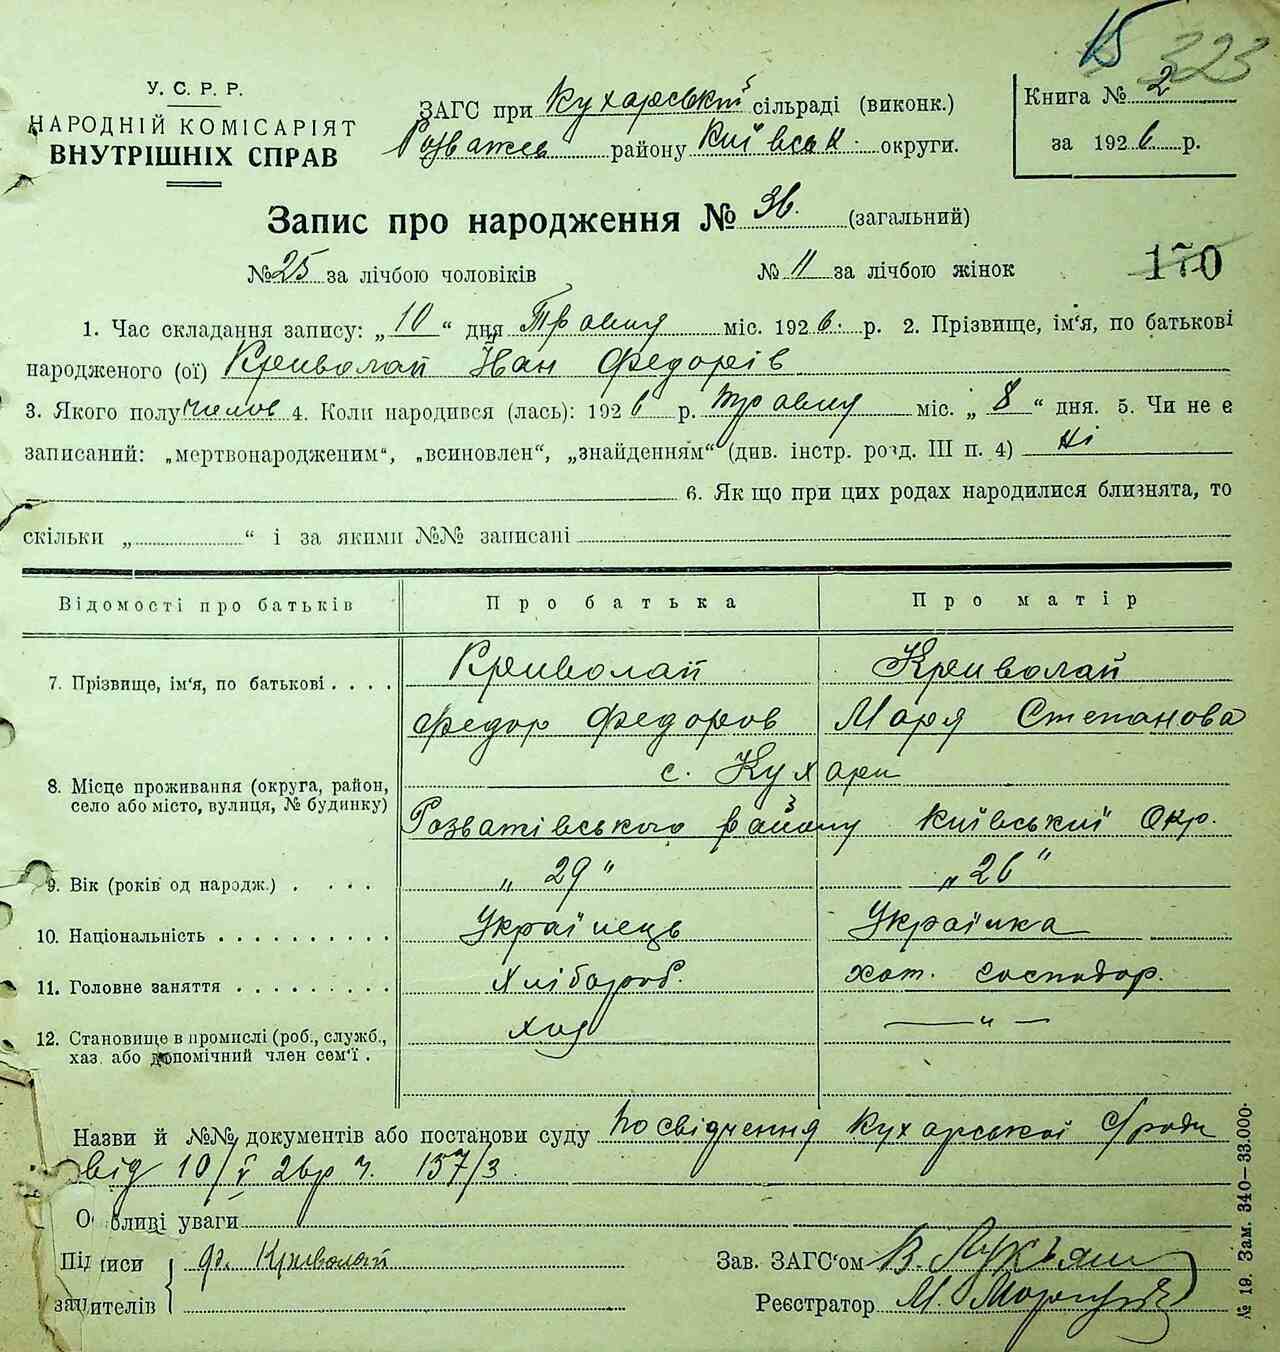 15 323
У. С. Р. Р.
НАРОДНІЙ КОМІСАРІЯТ
ВНУТРІШНІХ СПРАВ
ЗАГС при Кухарській сільраді (виконк.)
Розважев району Київськ. округи.
Книга № 2
за 1926 р.
Запис про народження № 36. (загальний)
№ 25 за лічбою чоловіків № 11 за лічбою жінок
170
1. Час складання запису: „10“ дня Травня міс. 1926. р. 2. Прізвище, ім‘я, по батькові
народженого (ої) Криволап Іван Федорів
3. Якого полу чилов 4. Коли народився (лась): 1926 р. травня міс. „8“ дня. 5. Чи не є
записаний: „мертвонародженим“, „всиновлен“, „знайденням“ (див. інстр. розд. III п. 4) Ні
6. Як що при цих родах народилися близнята, то
скільки „ “ і за якими №№ записані
Відомості про батьків Про батька Про матір
7. Прізвище, ім‘я, по батькові . . . . Криволап Криволап
Федор Федоров Маря Степанова
8. Місце проживання (округа, район, с. Кухари
село або місто, вулиця, № будинку) Розватівського району Київський Окр.
9. Вік (років од народж.) . . . . „29“ „26“
10. Національність . . . . . . . . . . Українець Українка
11. Головне заняття . . . . . . . . . Хлібороб. хат. господар.
12. Становище в промислі (роб., служб., хоз — „ —
хаз. або допомічний член сем‘ї .
Назви й №№ документів або постанови суду Посвідчення Кухарської с/ради
від 10/V 26р ч. 157/3.
Особливі уваги
Підписи Криволап Зав. ЗАГС‘ом В. Лукьян
заявителів Реєстратор М.
№ 19. Зам. 340—33.000.